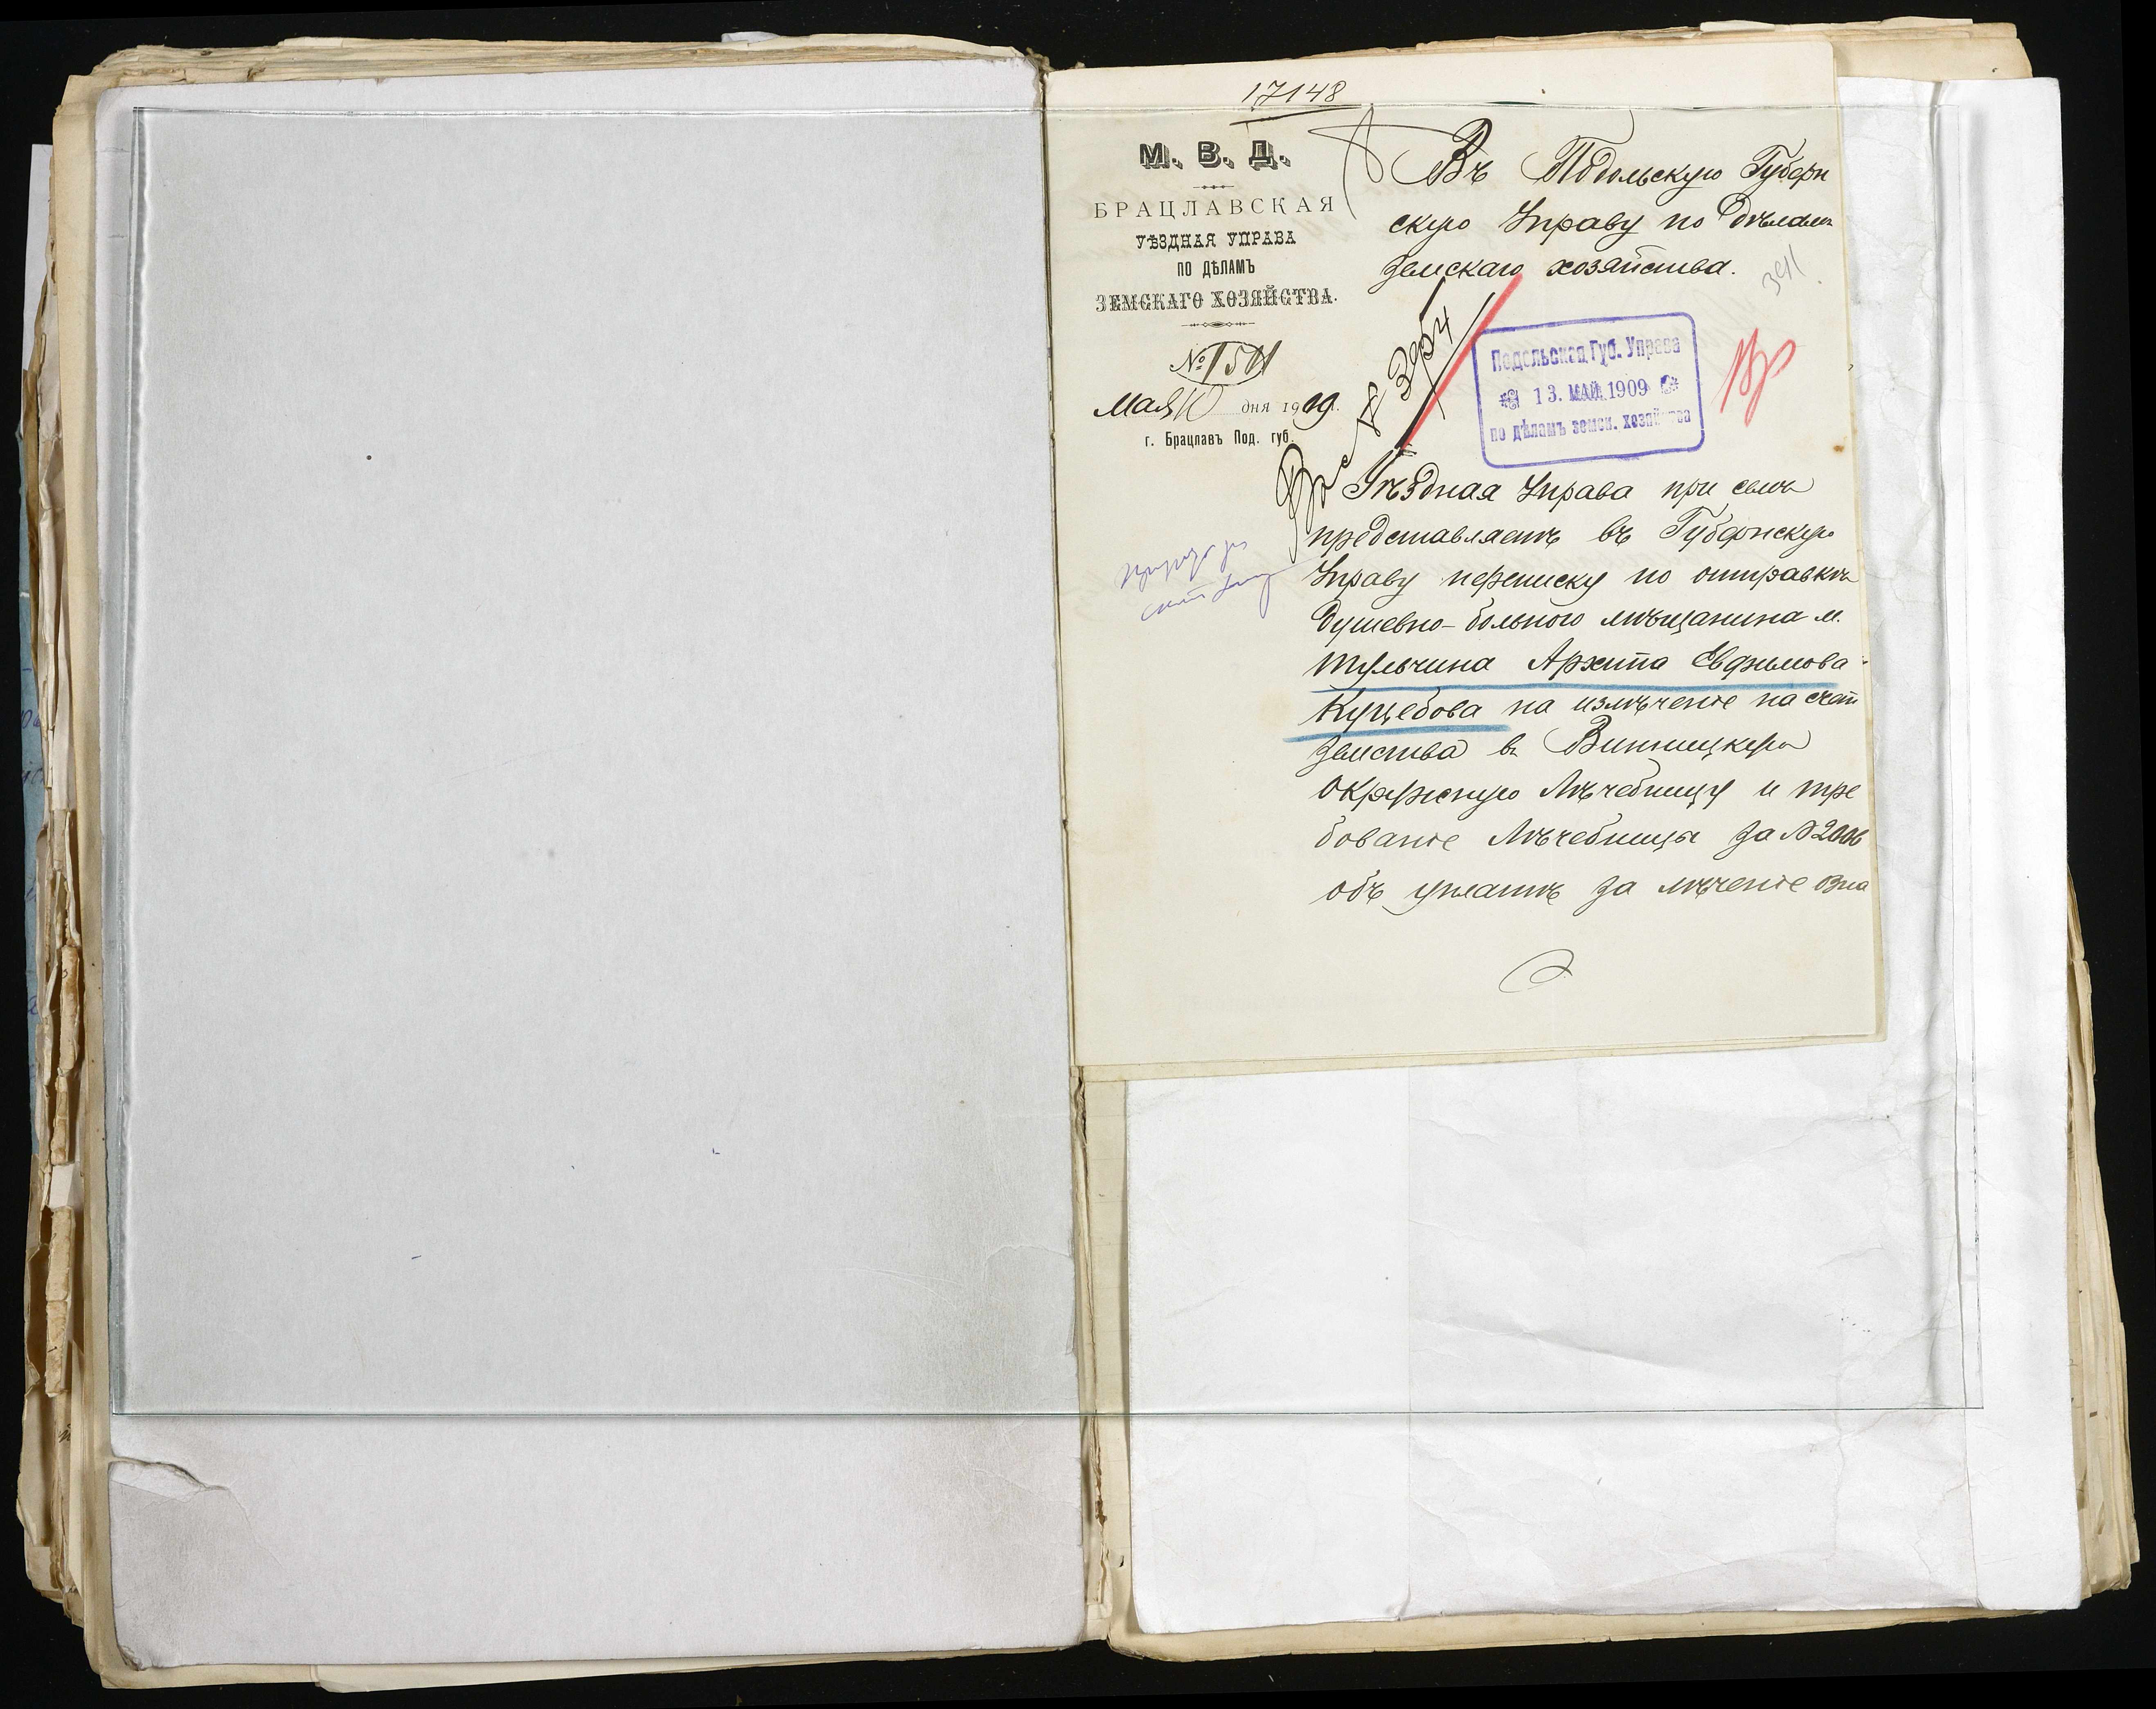 17148
М. В. Д.
БРАЦЛАВСКАЯ
УѢЗДНАЯ УПРАВА
ПО ДѢЛАМЪ
ЗЕМСКАГО ХОЗЯЙСТВА.
№ 1501
Мая 10 дня 1909 г.
г. Брацлавъ Под. губ.
Въ Подольскую Губерн
скую Управу по Дѣламъ
Земскаго хозяйства.
Подольская Губ. Управа
13. МАЙ. 1909
по дѣламъ земск. хозяйства
Уѣздная Управа при семъ
представляетъ въ Губернскую
Управу переписку по отправкѣ
душевно-больного мѣщанина м.
Тульчина Архипа Евфимова
Куцебова на излѣченіе на счетъ
Земства въ Винницкую
Окружную Лѣчебницу и тре
бованіе Лѣчебницы за № 2006
объ уплатѣ за лѣченіе